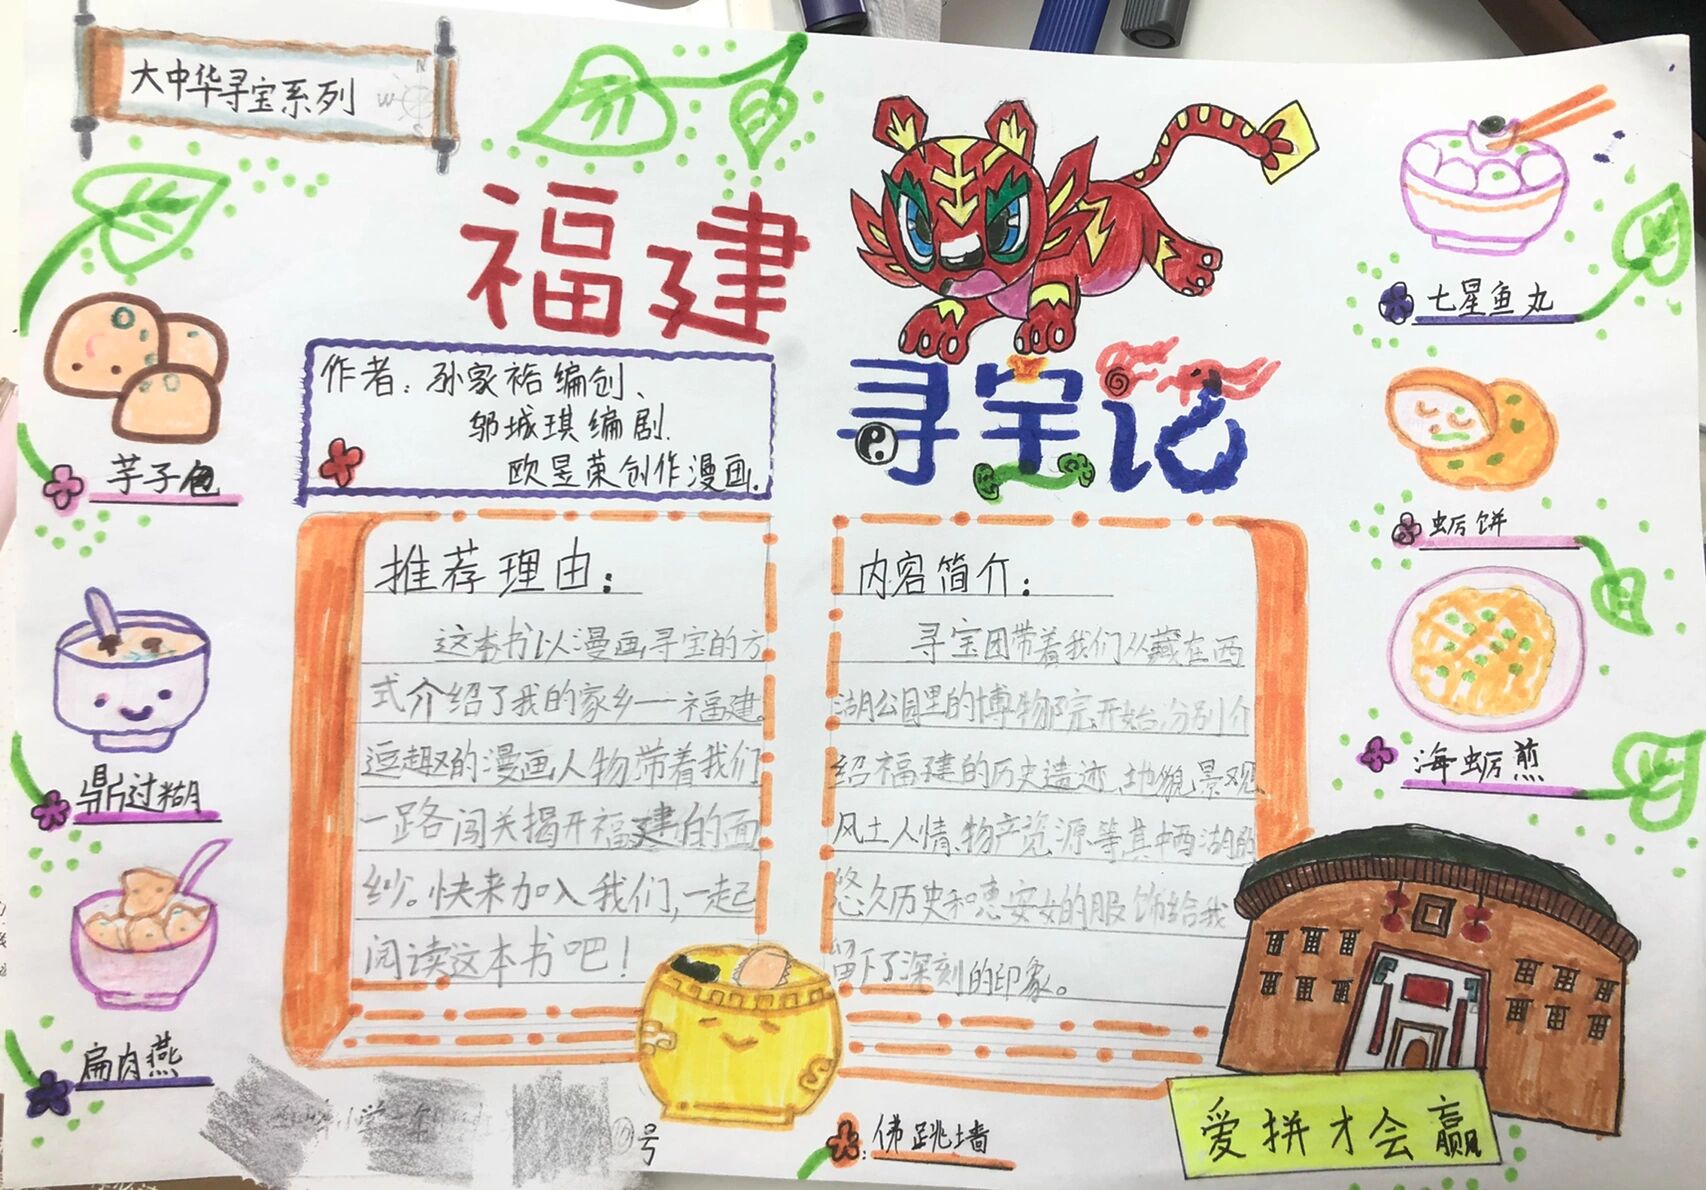 大中华寻宝系列
福建
寻宝记
作者：孙家裕编创、
邬城琪编剧.
欧昱荣创作漫画.
推荐理由：
这本书以漫画寻宝的方
式介绍了我的家乡——福建。
逗趣的漫画人物带着我们
一路闯关揭开福建的面
纱。快来加入我们,一起
阅读这本书吧！
内容简介：
寻宝团带着我们从藏在西
湖公园里的博物院开始,分别介
绍福建的历史遗迹、地貌景观、
风土人情、物产资源等,其中西湖的
悠久历史和惠安女的服饰给我
留下了深刻的印象。
芋子包
鼎边糊
扁肉燕
七星鱼丸
蛎饼
海蛎煎
佛跳墙
爱拼才会赢
号